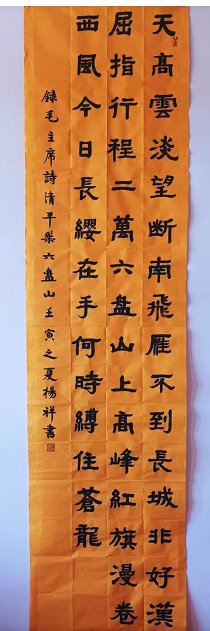 天高雲淡望断南飛雁不到長城非好漢
屈指行程二萬六盘山上高峰紅旗漫卷
西風今日長纓在手何時縛住蒼龍
録毛主席詩清平樂六盘山壬寅之夏楊祥書